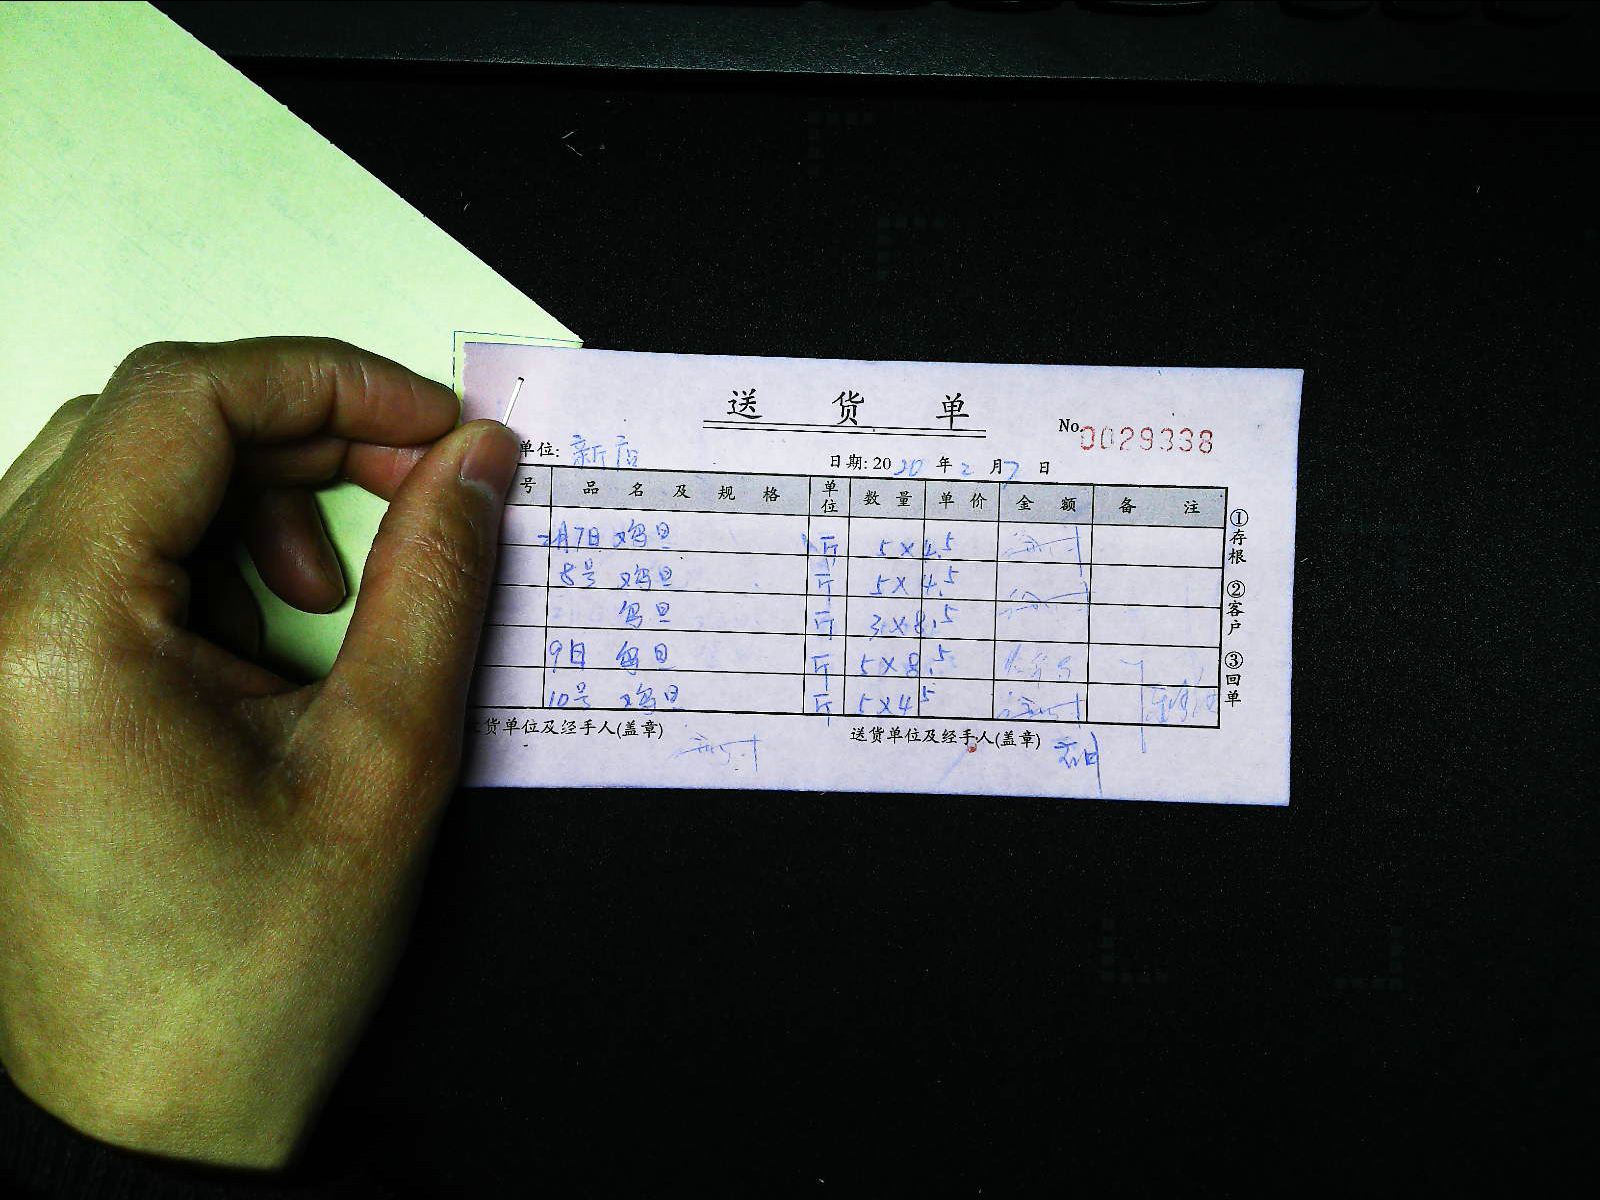 送 货 单
No. 0029338
单位: 新店
日期: 2020 年 2 月 7 日
号 品 名 及 规 格 单位 数 量 单 价 金 额 备 注
2月7日 鸡旦 斤 5 × 4.5
8号 鸡旦 斤 5 × 4.5
旦 斤 3 × 8.5
9日 旦 斤 5 × 8.5
10号 鸡旦 斤 5 × 4 5
①存根 ②客户 ③回单
货单位及经手人(盖章)
送货单位及经手人(盖章)